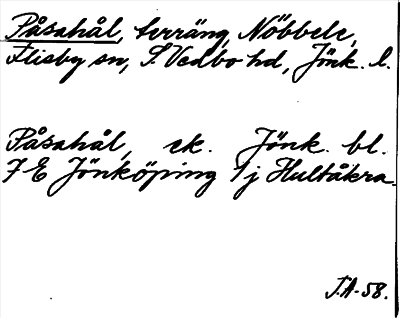 Påsahål, terräng, Nöbbele,
Flisby sn, S. Vedbo hd, Jönk. l.
Påsahål, ek. Jönk. bl.
7 E Jönköping 1 j Hultåkra.
J.A-58.